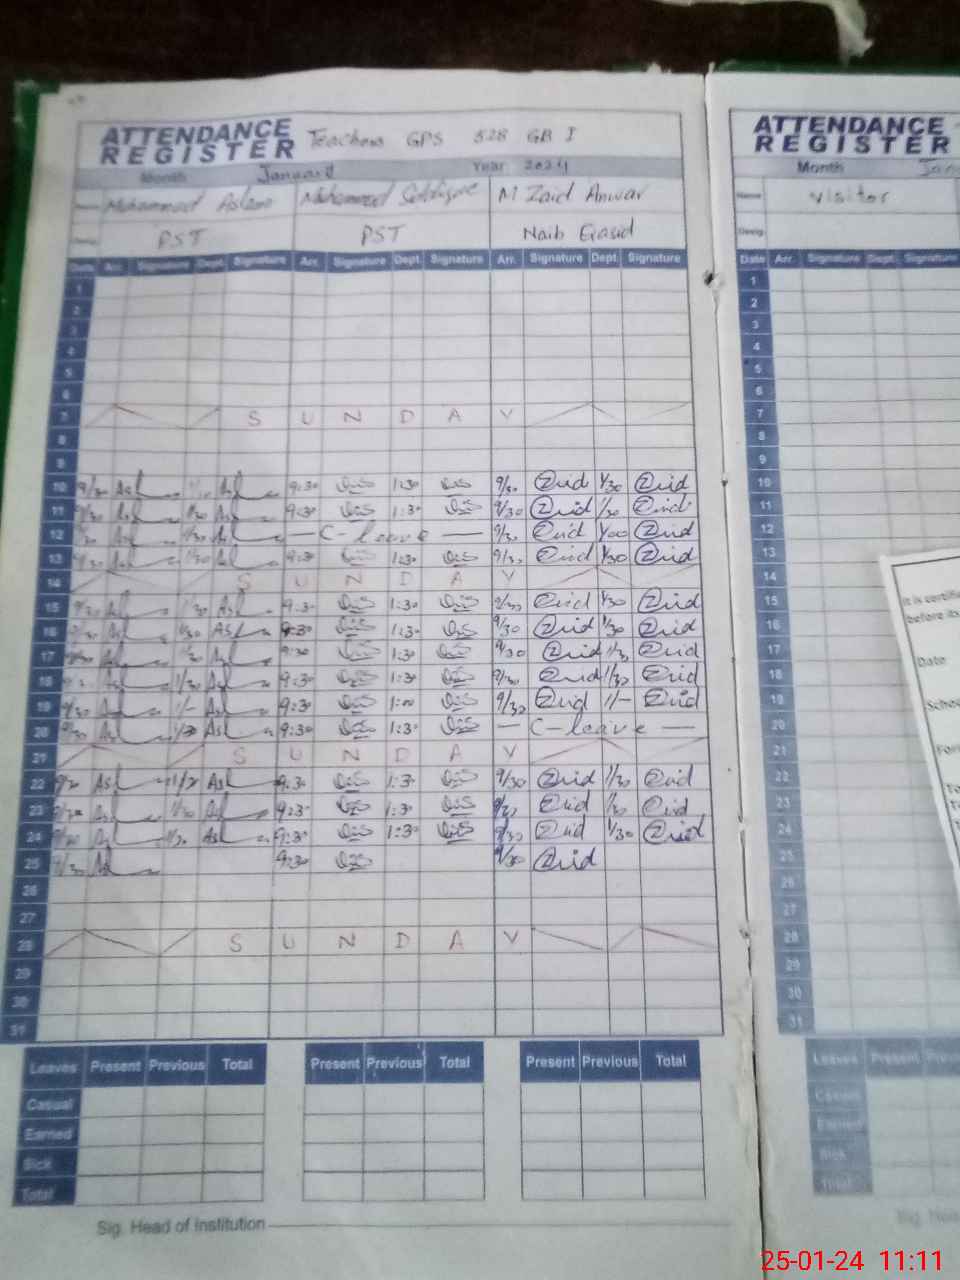 ATTENDANCE REGISTER Teachers GPS 528 GB I
Month January Year 2024
Name Muhammad Aslam Muhammad M Zaid Anwar
Desig. PST PST Naib Qasid
Date Arr. Signature Dept. Signature Arr. Signature Dept. Signature Arr. Signature Dept. Signature
1
2
3
4
5
6
7 S U N D A Y
8
9
10 9/30 Asl Asl 9:30 1:30 9/30 Zaid 1/30 Zaid
11 9/30 Asl 1/30 Asl 9:30 1:30 9/30 Zaid 1/30 Zaid
12 Asl 1/30 Asl — C-leave — 9/30 Zaid 1/00 Zaid
13 9/30 Asl 1/30 Asl 9:30 1:30 9/30 Zaid 1/30 Zaid
14 S U N D A Y
15 9/30 Asl 1/30 Asl 9:30 1:30 9/30 Zaid 1/30 Zaid
16 9/30 Asl 1/30 Asl 9:30 1:30 9/30 Zaid 1/30 Zaid
17 Asl 1/30 Asl 9:30 1:30 9/30 Zaid 1/30 Zaid
18 Asl 1/30 Asl 9:30 1:30 9/30 Zaid 1/30 Zaid
19 9/30 Asl 1/- Asl 9:30 1:00 9/30 Zaid 1/- Zaid
20 9/30 Asl 1/30 Asl 9:30 1:30 — C-leave —
21 S U N D A Y
22 9/30 Asl 1/30 Asl 9:30 1:30 9/30 Zaid 1/30 Zaid
23 9/30 Asl 1/30 Asl 9:30 1:30 9/30 Zaid 1/30 Zaid
24 9/30 Asl 1/30 Asl 9:30 1:30 9/30 Zaid 1/30 Zaid
25 9/30 Asl 9:30 9/30 Zaid
26
27
28 S U N D A Y
29
30
31
Leaves Present Previous Total Present Previous Total Present Previous Total
Casual
Earned
Sick
Total
Sig. Head of Institution
ATTENDANCE REGISTER
Month Jan
Name Visitor
Desig.
Date Arr. Signature Dept. Signature
1
2
3
4
5
6
7
8
9
10
11
12
13
14
15
16
17
18
19
20
21
22
23
24
25
26
27
28
29
30
31
Leaves Present
Casual
Earned
Sick
Total
Sig.
It is certifi
before its
Date
For
25-01-24 11:11